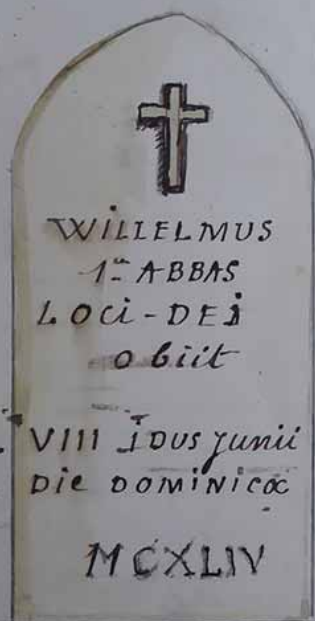 WILLELMUS
1us ABBAS
LOCI-DEI
obiit
VIII IDUS Junii
Die DOMINICA
MCXLIV